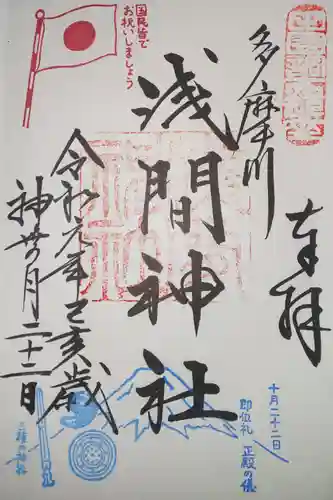 奉拝
多摩川
浅間神社
令和元年己亥歳
神無月二十二日
国民皆で
お祝いしましょう
十月二十二日
即位礼 正殿の儀